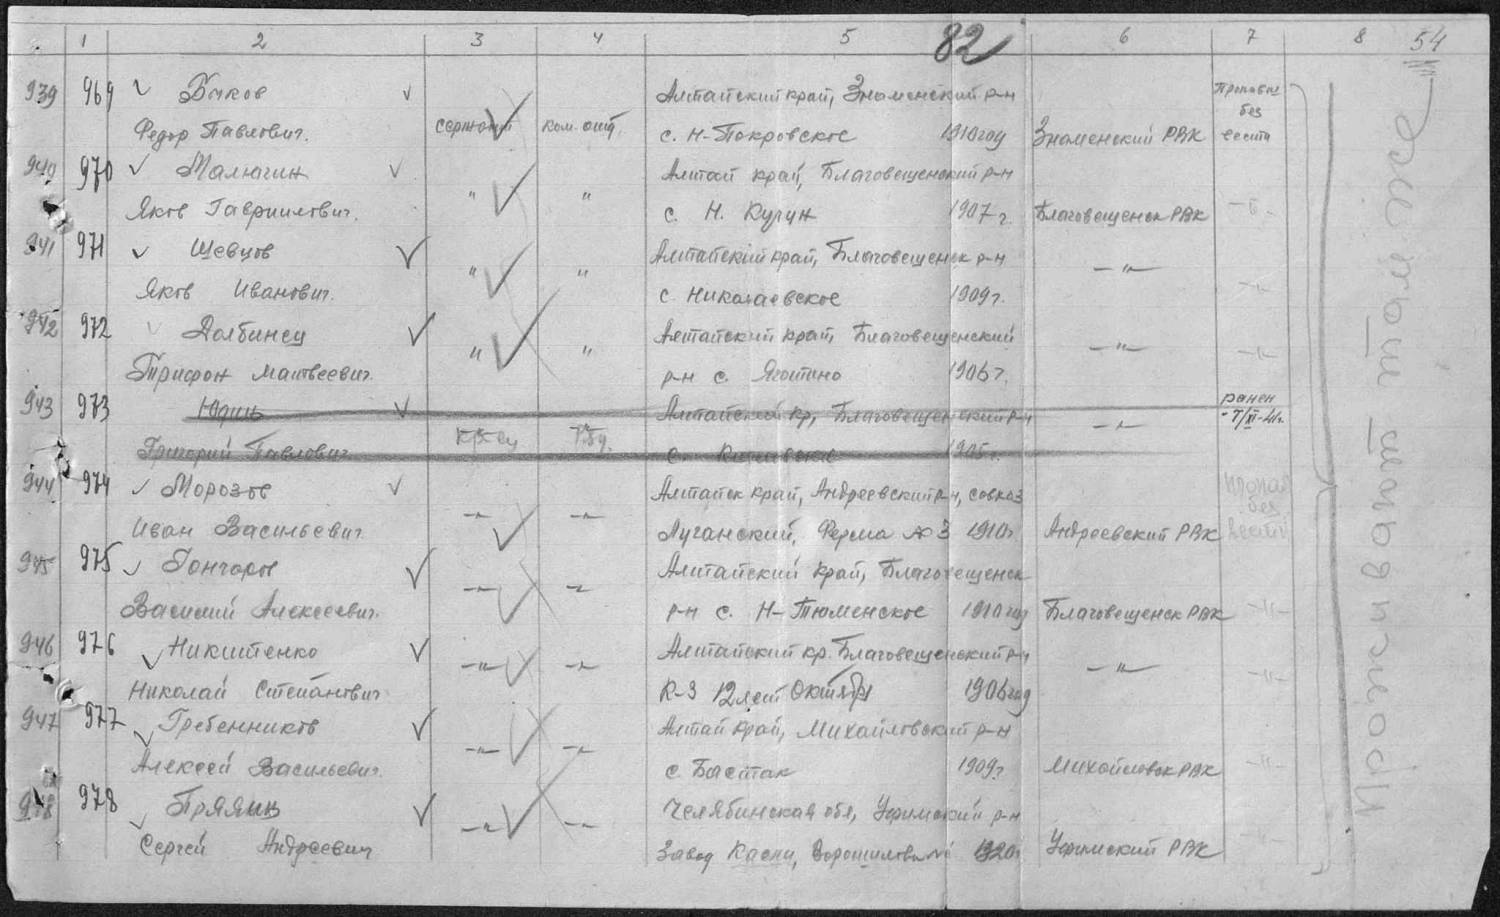 1 2 3 4 5 82 6 7 8 54
939 969 Быков Алтайский край, Знаменский р-н Пропал без вести
Федор Павлович. сержант ком. отд. с. Н-Покровское 1910 год Знаменский РВК
940 970 Малюгин Алтай край, Благовещенский р-н
Яков Гавриилович. " " с. Н. Кучук 1907 г. Благовещенск РВК -"-
941 971 Шевцов Алтайский край, Благовещенск р-н
Яков Иванович. " " с. Николаевское 1909 г. -"- -"-
942 972 Долбинец Алтайский край, Благовещенский
Трифон Матвеевич. " " р-н с. Яготино 1906 г. -"- -"-
943 973 Юдин Алтайский кр, Благовещенский р-н ранен
Григорий Павлович с. 1905 г. -"- 7/XI-41 г.
944 974 Морозов Алтайск край, Андреевский р-н, совхоз пропал без вести
Иван Васильевич -"- -"- Луганский, Ферма №3 1910 г. Андреевский РВК
945 975 Гончаров Алтайский край, Благовещенск
Василий Алексеевич. -"- -"- р-н с. Н-Тюменское 1910 год Благовещенск РВК -"-
946 976 Никитенко Алтайский кр. Благовещенский р-н
Николай Степанович -"- -"- К-З 12 лет Октября 1906 год -"- -"-
947 977 Гребенников Алтай край, Михайловский р-н
Алексей Васильевич. -"- -"- с. Бастан 1909 г. Михайловск РВК -"-
948 978 Прянин Челябинская обл, Уфимский р-н
Сергей Андреевич -"- -"- Завод 1920 г. Уфимский РВК -"-